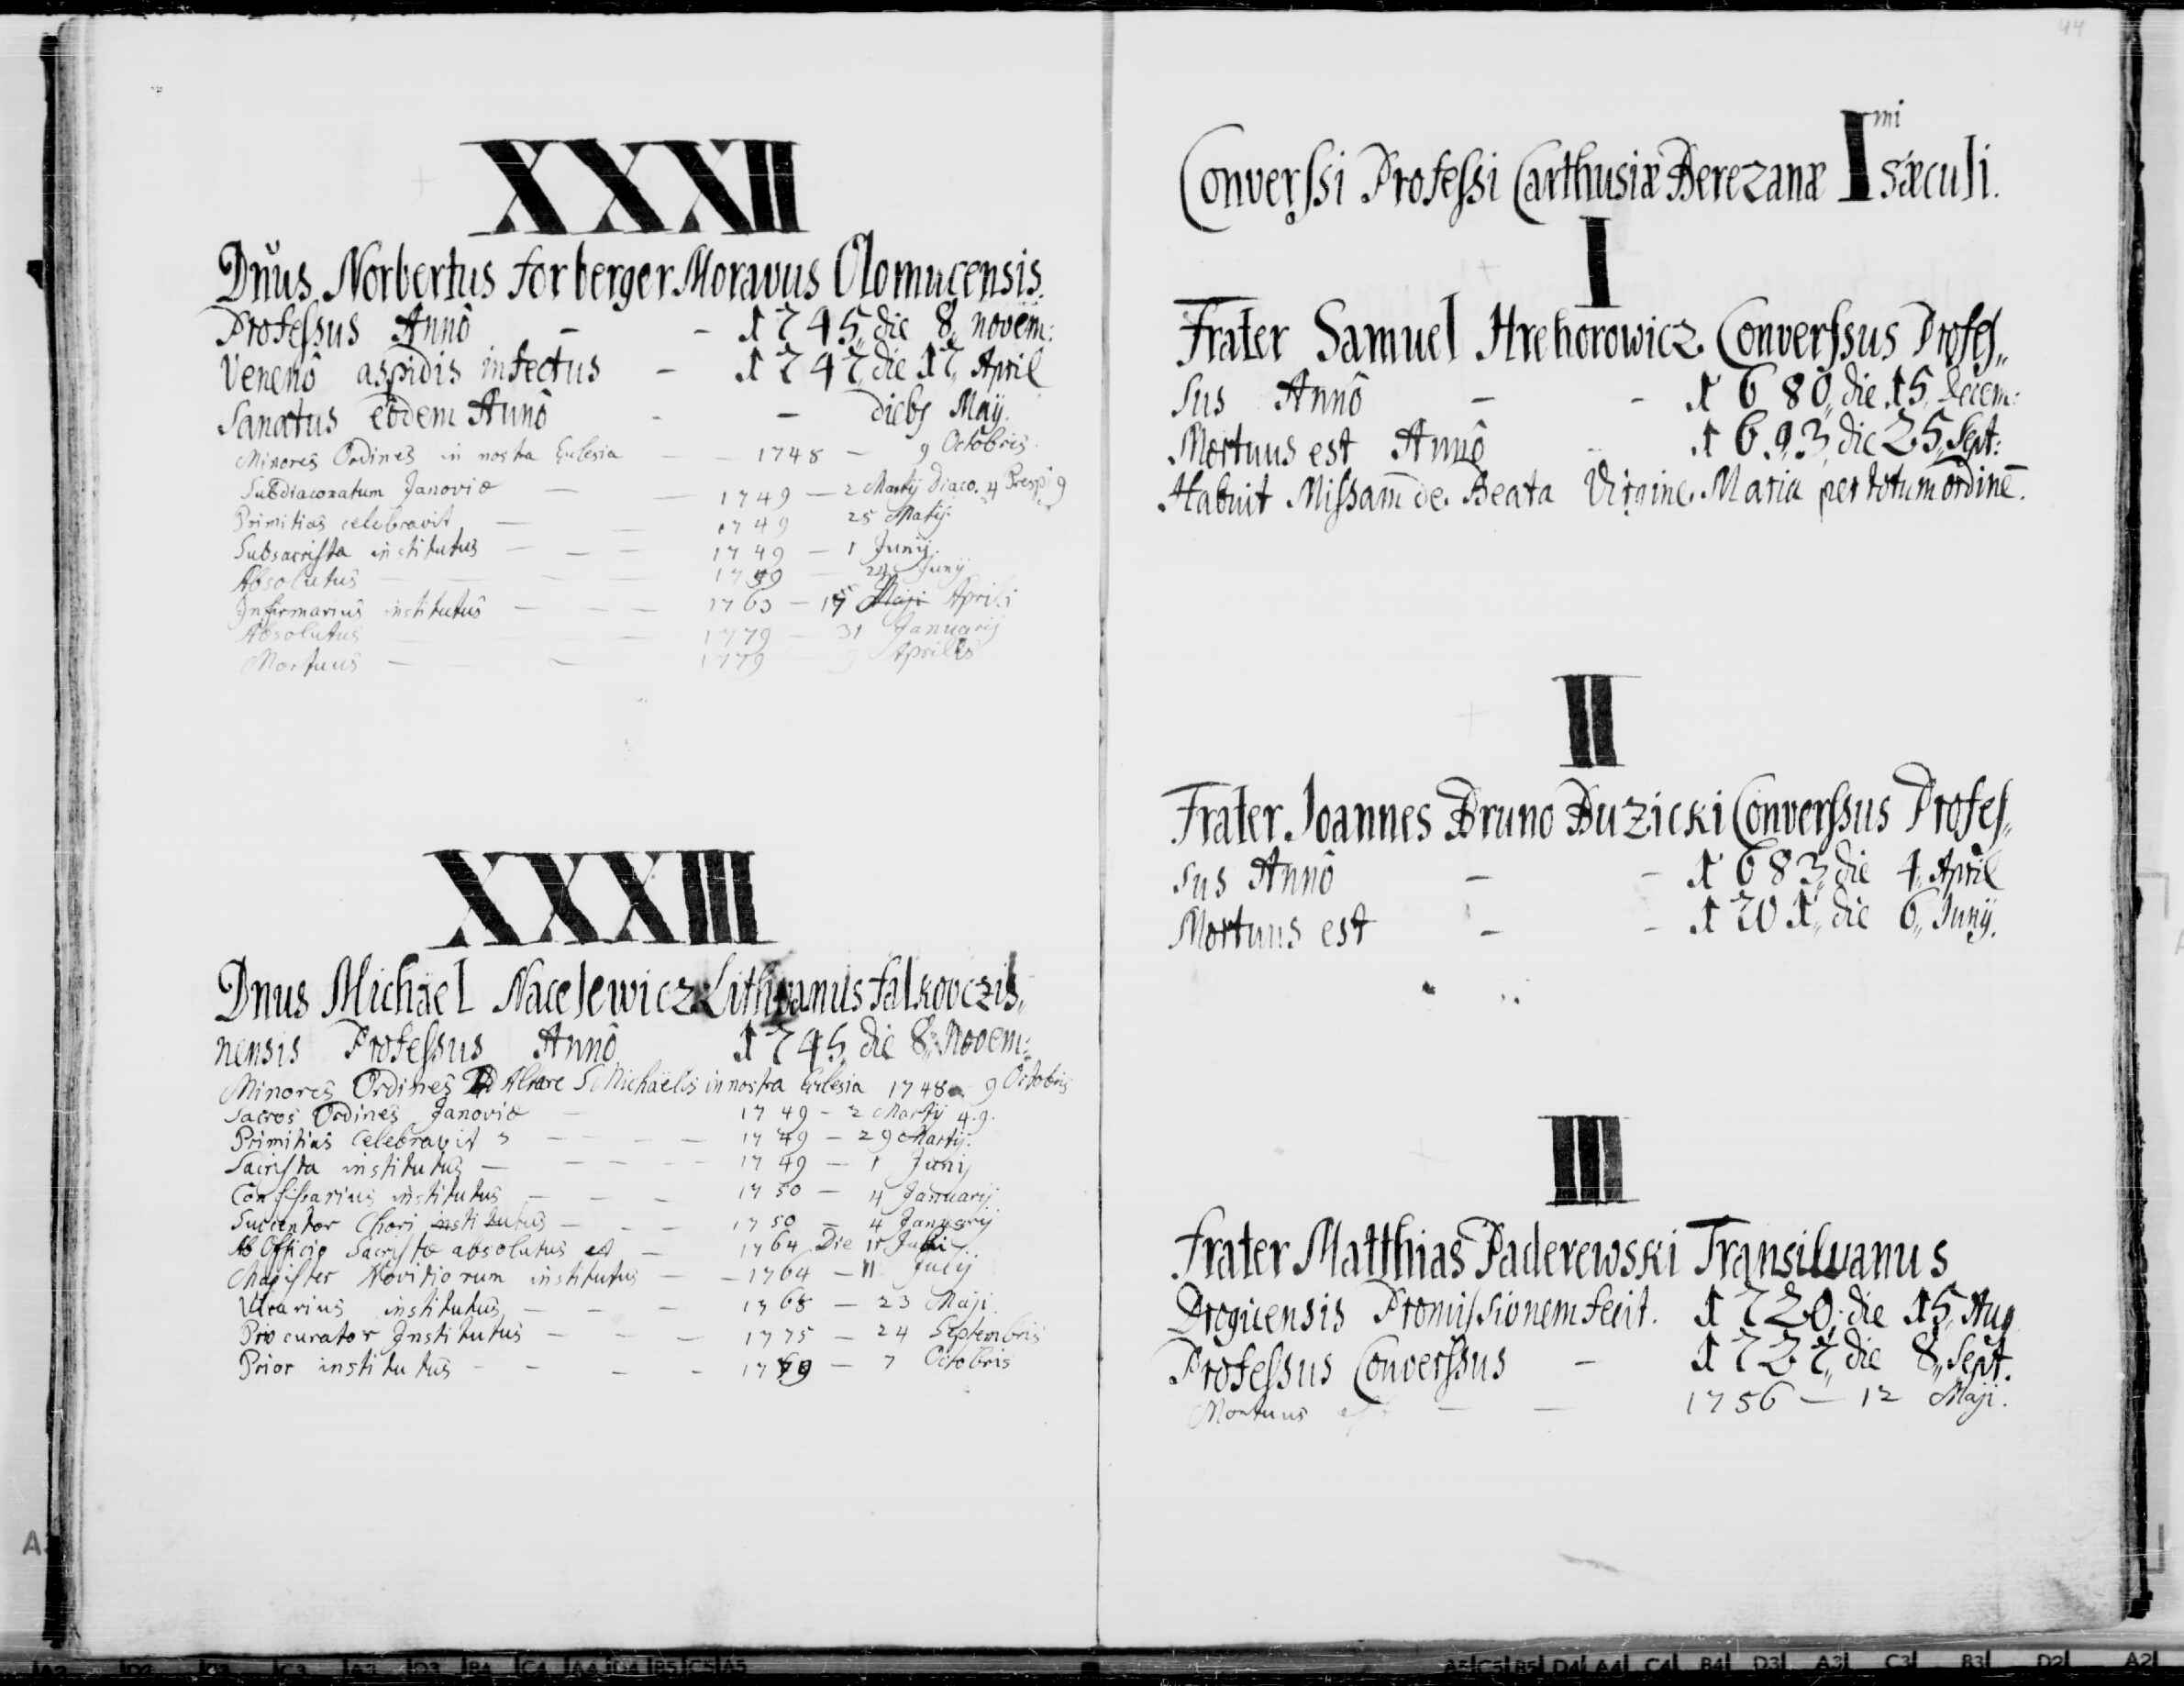 XXXII
Dn̄us Norbertus forberger Moravus Olomucensis.
Professus Annô - - 1745,, die 8,, novem:
Venenô aspidis infectus - 1747,, die 17,, April
Sanatus eôdem Annô - - diebs Maij.
Minores Ordines in nostra Ecclesia - - 1748 - 9 Octobris.
Subdiaconatum Janoviæ - - 1749 - 2 Martij Diaco. 4 Presp: 9
Primitias celebravit - - 1749 25 Martij.
Subsacrista institutus - - - 1749 - 1 Junij.
Absolutus - - - - 1759 - 24 Junij
Infirmarius institutus - - - 1763 - 15 Maji Aprilis
Absolutus - - 1779 - 31 Januarij
Mortuus - - 1779 Aprilis
XXXIII
Dnus Michäel Nacelewicz Lithvanus falkovczis,,
nensis Professus Annô 1745,, die 8,, Novem:
Minores Ordines Ad Altare S. Michaëlis in nostra Ecclesia 1748 9 Octobris
Sacros Ordines Janoviæ - 1749 - 2 Martij 4.9.
Primitias Celebravit - - - - 1749 - 29 Martij.
Sacrista institutus - - - - 1749 - 1 Junij
Confessarius institutus - - - 1750 - 4 Januarij
Succentor Chori institutus - - - 1750 - 4 Januarij
Ab Officio Sacristæ absolutus est - 1764 Die 11 Julii
Magister Novitiorum institutus - - 1764 - 11 Julij
Vicarius institutus - - - 1768 - 23 Maji.
Procurator Institutus - - - 1775 - 24 Septembris
Prior institutus - - - - 1779 - 7 Octobris
44
Converssi Professi Carthusiæ Berezanæ I mi sæculi.
I
Frater Samuel Hrehorowicz Converssus Profes,,
sus Annô - - 1680,, die 15,, Decem:
Mortuus est Annô - 1693,, die 25,, Sept:
Habuit Missam̄ de Beata Virgine Maria per totum ordinē.
II
Frater Joannes Bruno Buzicki Converssus Profes,,
sus Annô - - 1683,, die 4,, April
Mortuus est - - 1701,, die 6,, Junij.
III
Frater Matthias Paderewski Transilvanus
Drogicensis Promissionem fecit. 1720,, die 15,, Aug
Professus Converssus - 1727,, die 8,, Sept.
Mortuus est - - 1756 - 12 Maji.